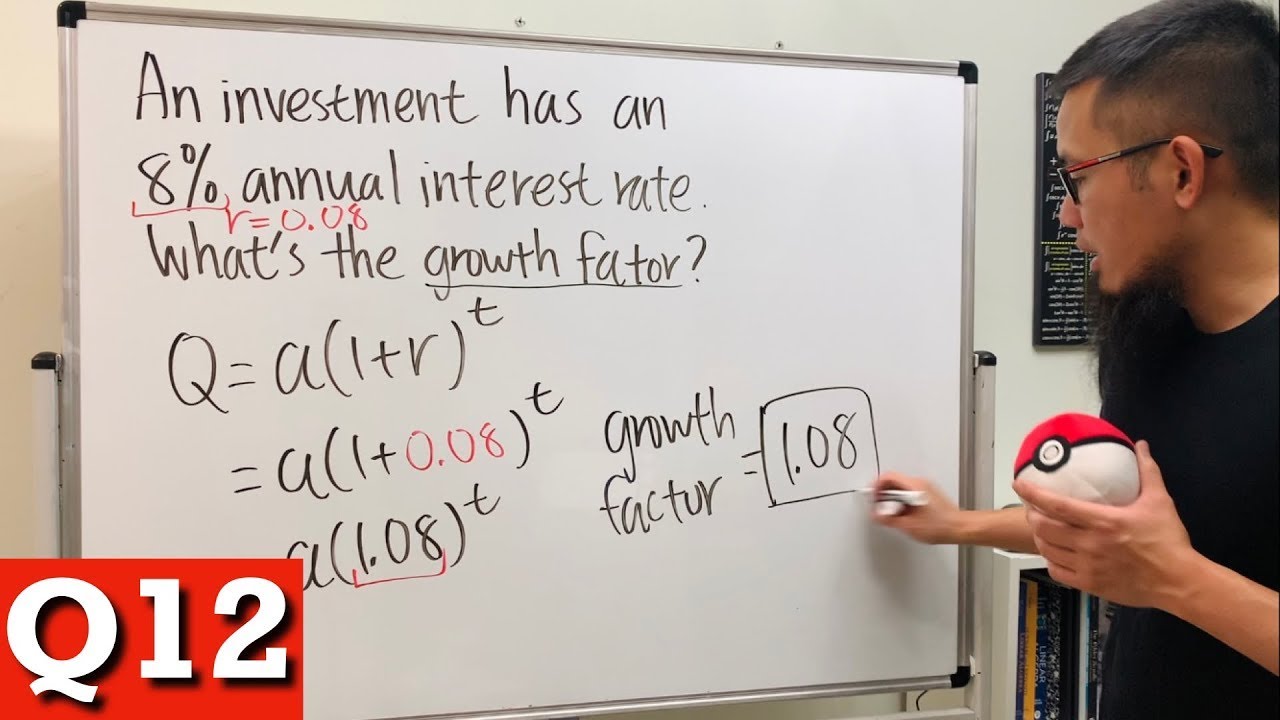 An investment has an
8% annual interest rate.
r=0.08
What's the growth fator?
Q=a(1+r)^t
=a(1+0.08)^t
a(1.08)^t
growth
factor = 1.08
Q12
LINEAR